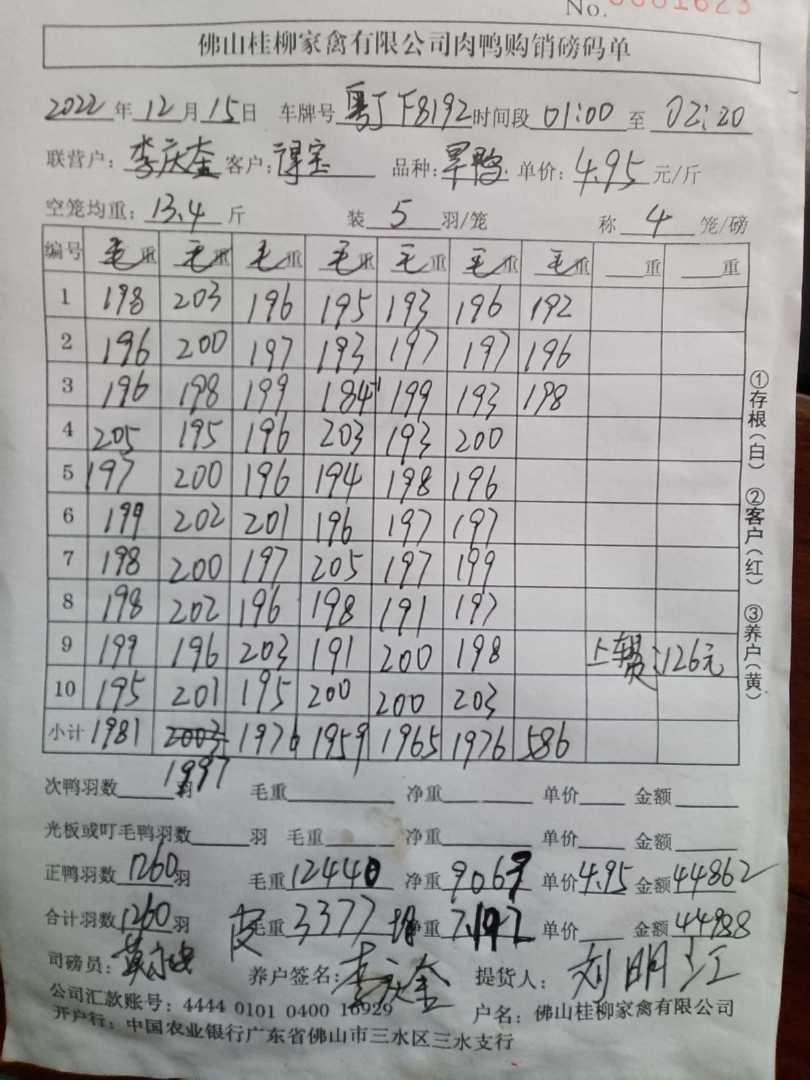 No. 0081623
佛山桂柳家禽有限公司肉鸭购销磅码单
2022年12月15日 车牌号粤J F8192 时间段01:00至02:20
联营户:李庆奎 客户:得宝 品种:旱鸭 单价:4.95元/斤
空笼均重:13.4斤 装5羽/笼 称4笼/磅
编号 毛重 毛重 毛重 毛重 毛重 毛重 毛重 重 重
1 198 203 196 195 193 196 192
2 196 200 197 193 197 197 196
3 196 198 199 184 199 193 198
4 205 195 196 203 193 200
5 197 200 196 194 198 196
6 199 202 201 196 197 197
7 198 200 197 205 197 199
8 198 202 196 198 191 197
9 199 196 203 191 200 198 上车费:126元
10 195 201 195 200 200 203
小计 1981 2003 1976 1959 1965 1976 586
1997
次鸭羽数 羽 毛重 净重 单价 金额
光板或叮毛鸭羽数 羽 毛重 净重 单价 金额
正鸭羽数1260羽 毛重12440 净重9063 单价4.95 金额44862
合计羽数1260羽 皮毛重3377 均净重7.192 单价 金额44988
司磅员: 养户签名:李庆奎 提货人:刘明江
公司汇款账号:4444 0101 0400 16929 户名:佛山桂柳家禽有限公司
开户行:中国农业银行广东省佛山市三水区三水支行
①存根(白) ②客户(红) ③养户(黄)